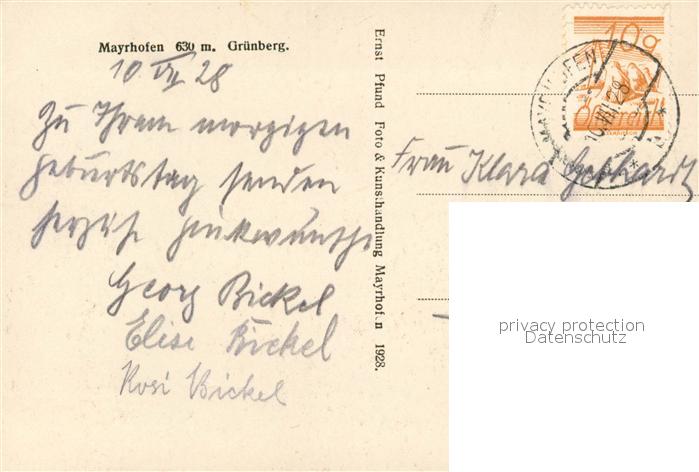 Mayrhofen 630 m. Grünberg.
10 VII 28
Zu Ihrem morgigen
Geburtstag senden
herzliche Glückwünsche
Georg Bickel
Elise Bickel
Rosi Bickel
Ernst Pfund Foto & Kunsthandlung Mayrhofen 1928.
10g
MAYRHOFEN
10.VII.28
Frau Klara Gebhardt
privacy protection
Datenschutz